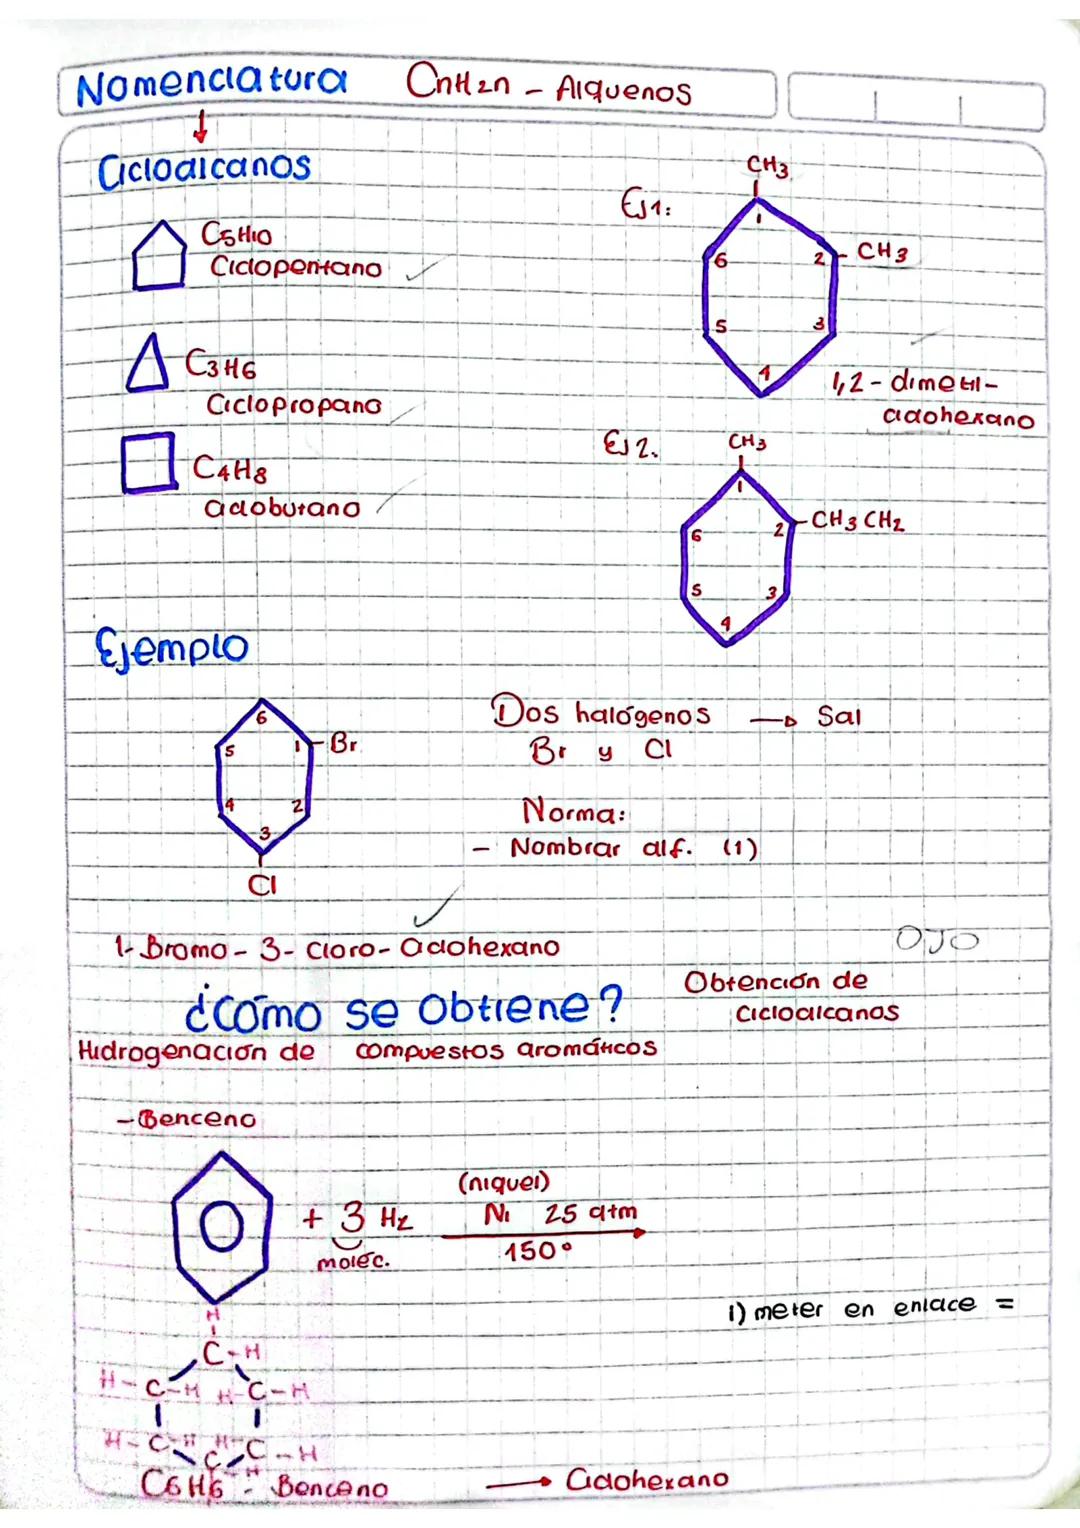 Nomenclatura CnH2n - Alquenos
Cicloalcanos
C5H10
Ciclopentano
C3H6
Ciclopropano
C4H8
ciclobutano
Ej1:
CH3
1
2 - CH3
3
4
5
6
1,2 - dimetil-
ciclohexano
Ej 2.
CH3
1
2 - CH3 CH2
3
4
5
6
Ejemplo
6
5
1 - Br
4
2
3
Cl
Dos halógenos → Sal
Br y Cl
Norma:
- Nombrar alf. (1)
1- Bromo - 3 - Cloro - Ciclohexano
OJO
¿Cómo se Obtiene?
Obtención de
Cicloalcanos
Hidrogenación de compuestos aromáticos
- Benceno
+ 3 H2
moléc.
(niquel)
Ni 25 atm
150°
1) meter en enlace =
H
C - H
H - C - H H - C - H
H - C - H H - C - H
C - H
C6H6 - Benceno → Ciclohexano